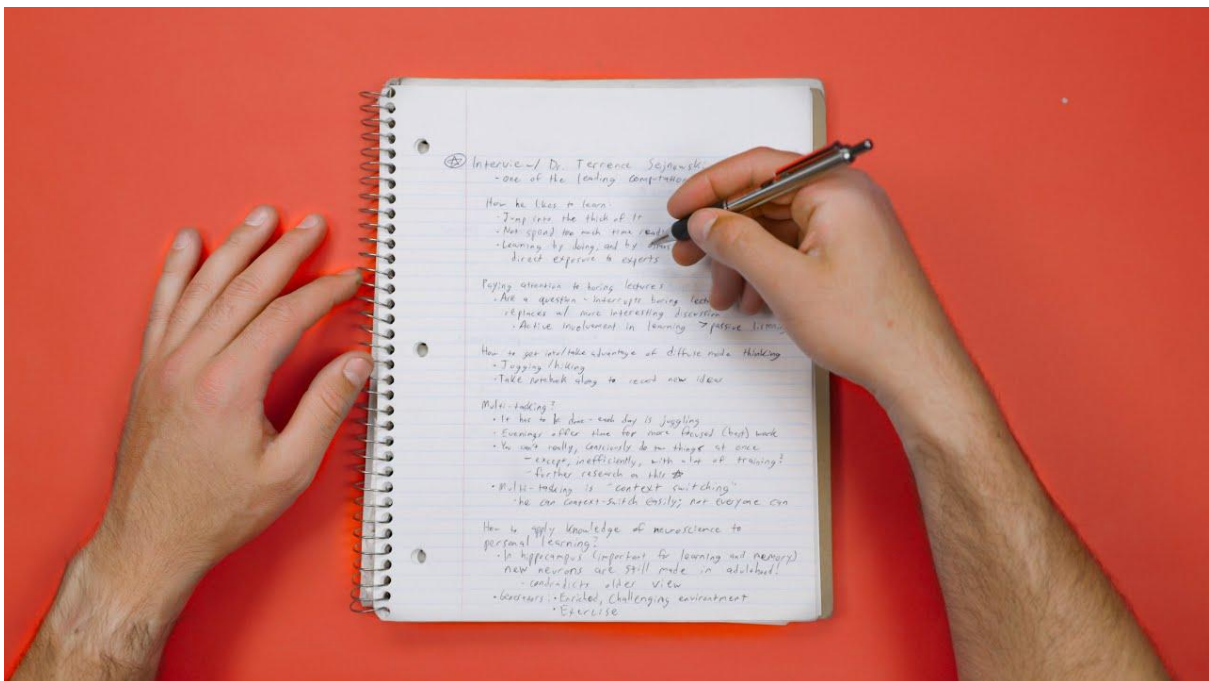 Interview/ Dr. Terrence Sejnowski
- one of the leading
How he likes to learn:
• Jump into the thick of it
• Not spend too much time
• Learning by doing, and by
direct exposure to experts
Paying attention to boring lectures
• Ask a question - interrupts boring
replaces w/ more interesting discussion
• Active involvement in learning > passive listening
How to get into/take advantage of diffuse mode thinking
• Jogging/hiking
• Take notebook along to record new ideas
Multi-tasking?
• It has to be done - each day is juggling
• Evenings offer time for more focused (best) work
• You can't really, consciously do two things at once
- except, inefficiently, with a lot of training?
- further research on this ☆
• Multi-tasking is "context switching"
• he can context-switch easily; not everyone can
How to apply knowledge of neuroscience to
personal learning?
• In hippocampus (important for learning and memory)
new neurons are still made in adulthood!
- contradicts older view
• Enriched, challenging environment
• Exercise